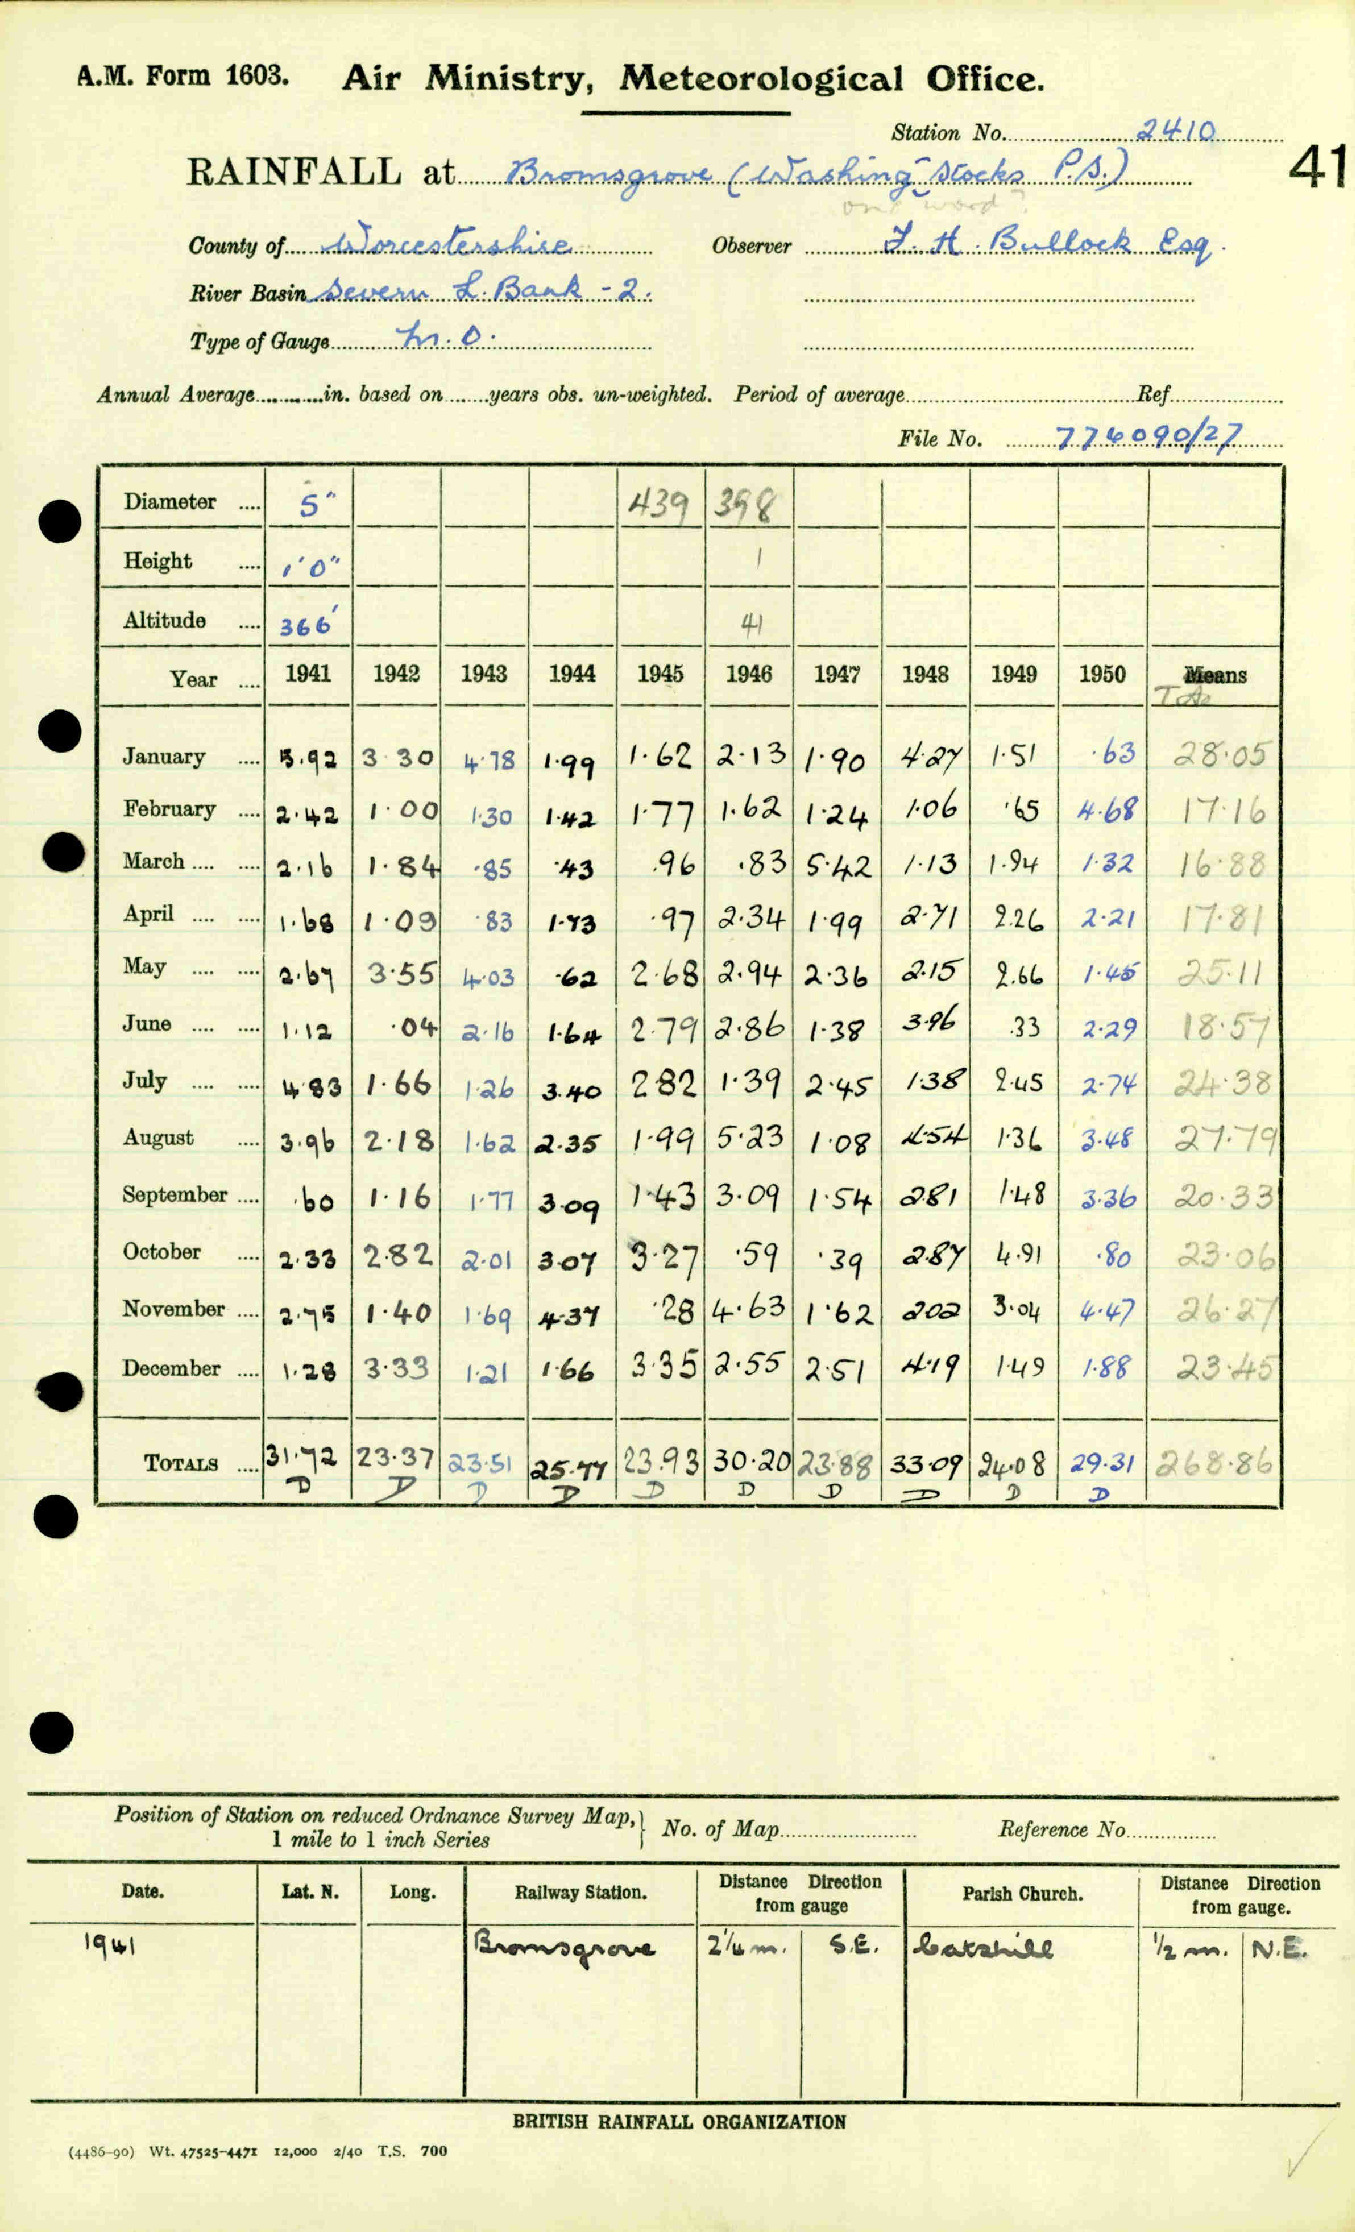 A.M. Form 1603. Air Ministry, Meteorological Office.
Station No. 2410
41
RAINFALL at Bromsgrove (Washing-Stocks P.S.)
one word?
County of Worcestershire Observer F. H. Bullock Esq.
River Basin Severn L. Bank - 2.
Type of Gauge M.O.
Annual Average in. based on years obs. un-weighted. Period of average Ref
File No. 776090/27
Diameter 5" 439 398
Height 1'0" 1
Altitude 366' 41
Year 1941 1942 1943 1944 1945 1946 1947 1948 1949 1950 Means
January 5.92 3.30 4.78 1.99 1.62 2.13 1.90 4.27 1.51 .63 28.05
February 2.42 1.00 1.30 1.42 1.77 1.62 1.24 1.06 .65 4.68 17.16
March 2.16 1.84 .85 .43 .96 .83 5.42 1.13 1.94 1.32 16.88
April 1.68 1.09 .83 1.73 .97 2.34 1.99 2.71 2.26 2.21 17.81
May 2.67 3.55 4.03 .62 2.68 2.94 2.36 2.15 2.66 1.45 25.11
June 1.12 .04 2.16 1.64 2.79 2.86 1.38 3.96 .33 2.29 18.57
July 4.83 1.66 1.26 3.40 2.82 1.39 2.45 1.38 2.45 2.74 24.38
August 3.96 2.18 1.62 2.35 1.99 5.23 1.08 4.54 1.36 3.48 27.79
September .60 1.16 1.77 3.09 1.43 3.09 1.54 2.81 1.48 3.36 20.33
October 2.33 2.82 2.01 3.07 3.27 .59 .39 2.87 4.91 .80 23.06
November 2.75 1.40 1.69 4.37 .28 4.63 1.62 2.02 3.04 4.47 26.27
December 1.28 3.33 1.21 1.66 3.35 2.55 2.51 4.19 1.49 1.88 23.45
TOTALS 31.72 23.37 23.51 25.77 23.93 30.20 23.88 33.09 24.08 29.31 268.86
D D D D D D D D D D
Position of Station on reduced Ordnance Survey Map, No. of Map Reference No.
1 mile to 1 inch Series
Date. Lat. N. Long. Railway Station. Distance Direction from gauge Parish Church. Distance Direction from gauge.
1941 Bromsgrove 2 1/4 m. S.E. Catshill 1/2 m. N.E.
BRITISH RAINFALL ORGANIZATION
(4486-90) Wt. 47525-4471 12,000 2/40 T.S. 700